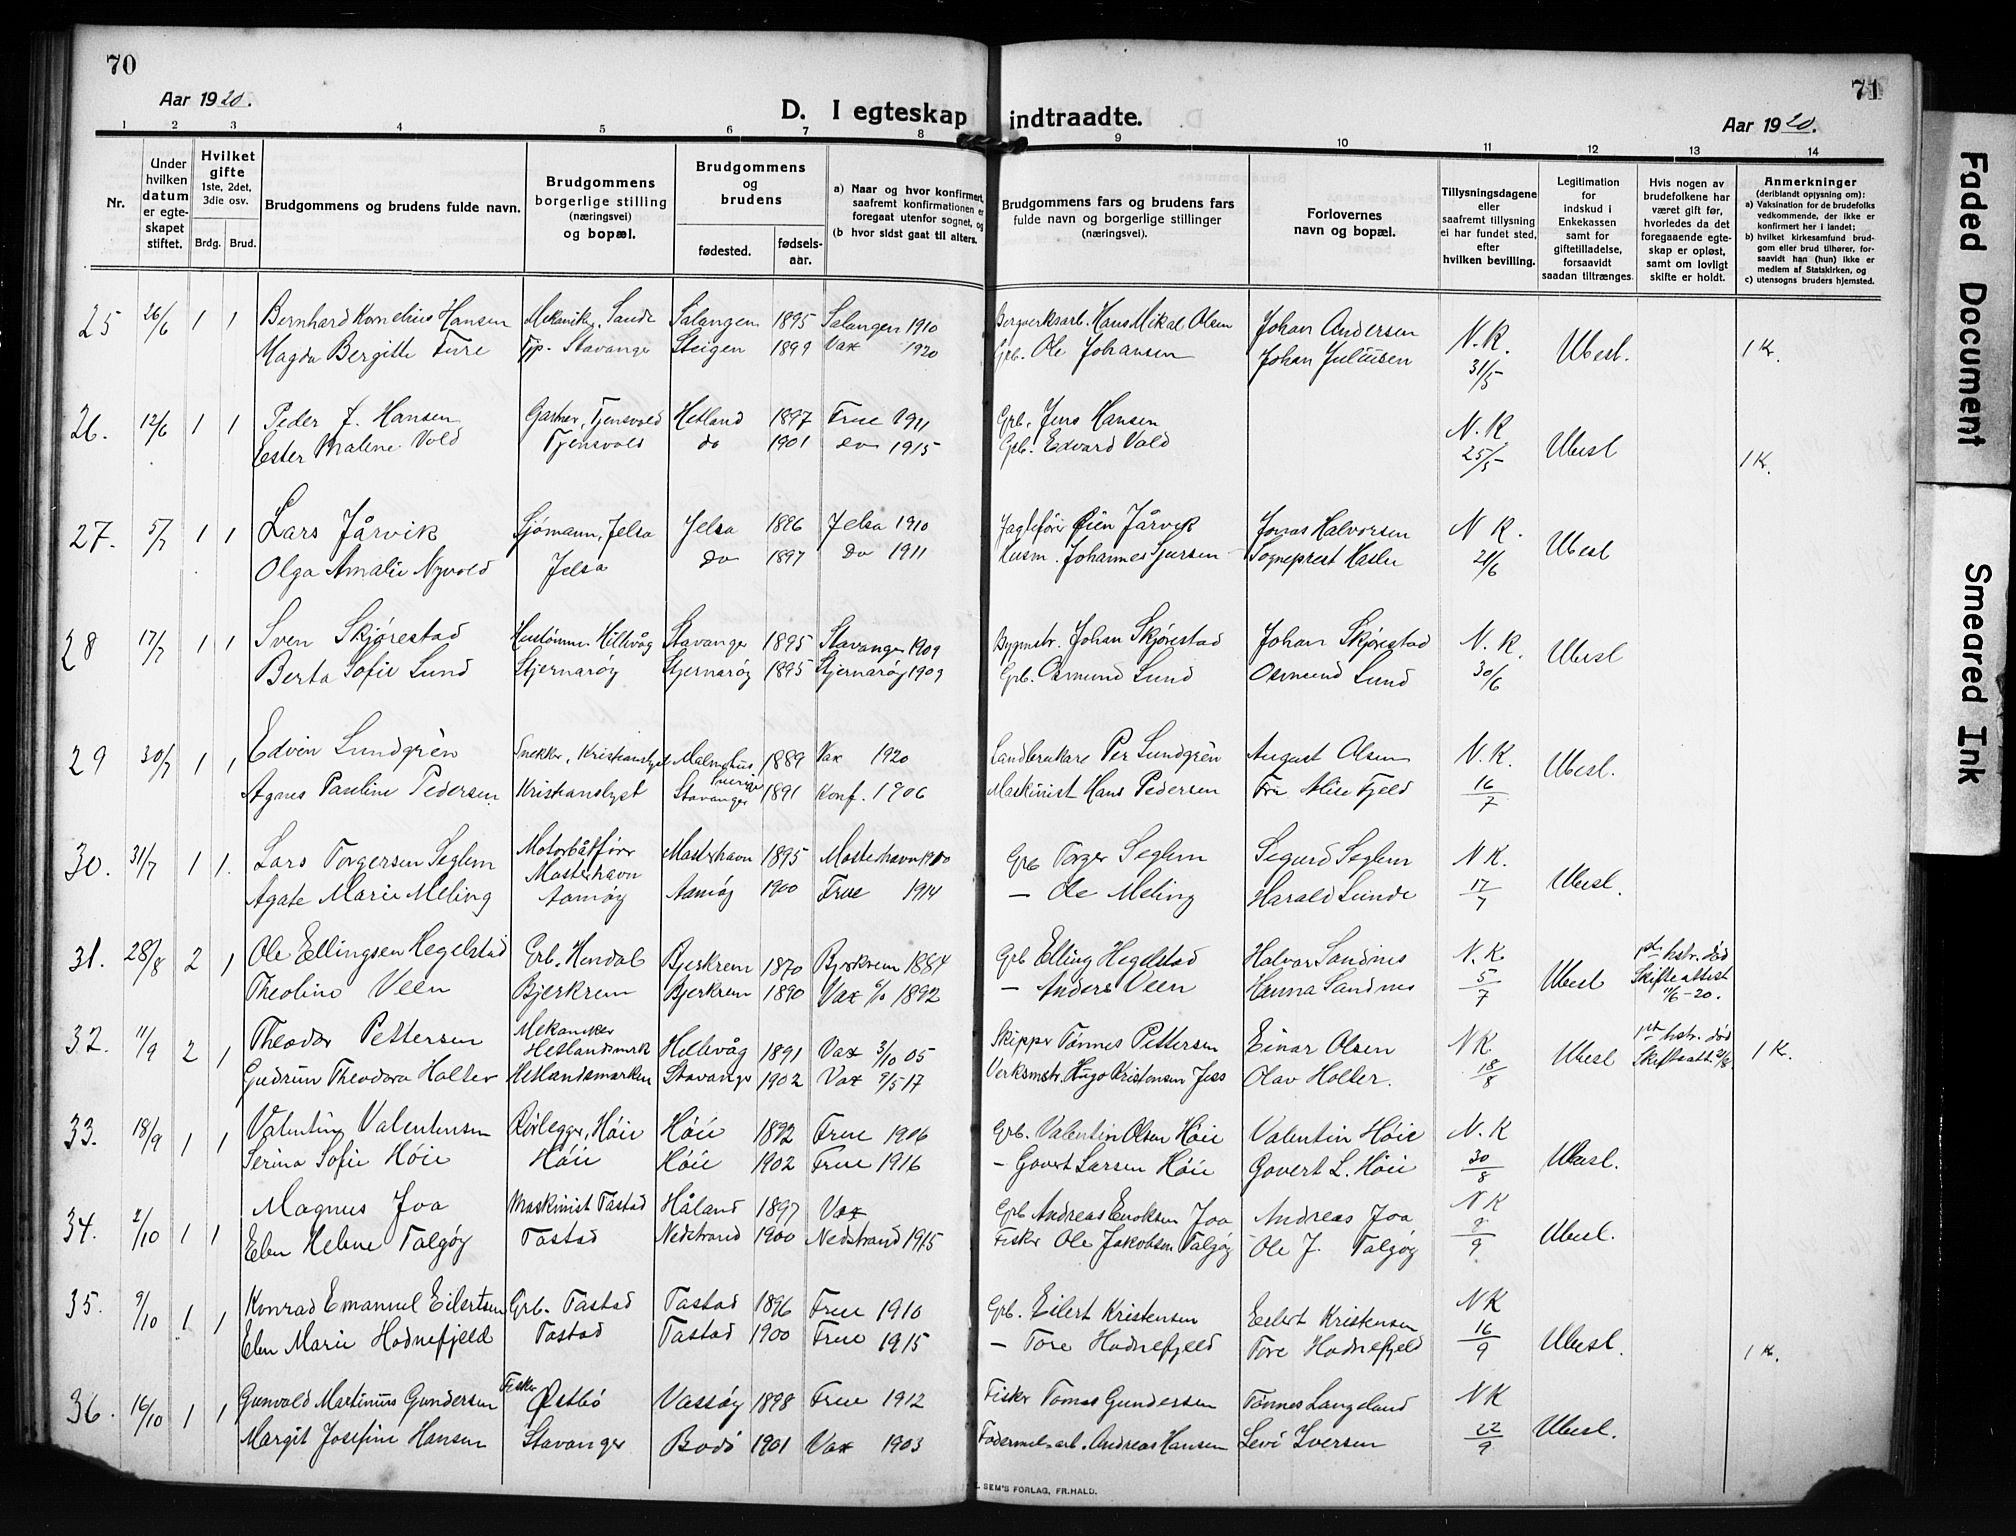 70
Aar 1920.
D. I egteskap indtraadte.
71
Aar 1920.
1 2 3 4 5 6 7 8 9 10 11 12 13 14
Nr.
Under hvilken datum er egteskapet stiftet.
Hvilket gifte 1ste, 2det, 3die osv.
Brdg. Brud.
Brudgommens og brudens fulde navn.
Brudgommens borgerlige stilling (næringsvei) og bopæl.
Brudgommens og brudens
fødested.
fødselsaar.
a) Naar og hvor konfirmert, saafremt konfirmationen er foregaat utenfor sognet, og
(b hvor sidst gaat til alters.
Brudgommens fars og brudens fars fulde navn og borgerlige stillinger (næringsvei).
Forlovernes navn og bopæl.
Tillysningsdagene eller saafremt tillysning ei har fundet sted, efter hvilken bevilling.
Legitimation for indskud i Enkekassen samt for giftetilladelse, forsaavidt saadan tiltrænges.
Hvis nogen av brudefolkene har været gift før, hvorledes da det foregaaende egteskap er opløst, samt om lovligt skifte er holdt.
Anmerkninger (deriblandt opjysning om):
a) Vaksination for de brudefolks vedkommende, der ikke er konfirmert her i landet;
b) hvilket kirkesamfund brudgom eller brud tilhører, forsaavidt han (hun) ikke er medlem af Statskirken, og
c) utensogns bruders hjemsted.
25 26/6 1 1 Bernhard Kornelius Hansen Mekaniker, Sande Salangen 1895 Salangen 1910 Bergverksarb. Hans Mikal Olsen Johan Andersen N. K. 31/5 Ubesl. 1 Kr.
Magda Bergitte Ture Tjp. Stavanger Steigen 1899 Vax 1920 Grb. Ole Johansen Johan Juliusen
26. 12/6 1 1 Peder J. Hansen Gartner, Tjensvold Hetland 1897 Frue 1911 Grb. Jens Hansen N. K. 25/5 Ubesl 1 Kr.
Ester Malene Vold Tjensvold do 1901 do 1915 Grb. Edvard Vold
27. 5/7 1 1 Lars Jårvik Sjømann, Jelsa Jelsa 1886 Jelsa 1910 Jagtefører Øien Jårvik Jonas Halvorsen N K. 21/6 Ubesl
Olga Amalie Nyvold Jelsa do 1897 do 1911 Husm. Johannes Sjursen Sogneprest Hasle
28 17/7 1 1 Sven Skjørestad Hillevåg Stavanger 1895 Stavanger 1909 Bygmstr. Johan Skjørestad Johan Skjørestad N. K. 30/6 Ubesl
Berta Sofie Lund Stjernarøy Stjernarøy 1895 Stjernarøy 1909 Grb. Osmund Lund Osmund Lund
29 30/7 1 1 Edvin Lundgrén Snekker, Kristianslyst Malmøhus Sverige 1889 Vax 1920 Landbrukare Per Lundgrén August Olsen N. K. 16/7 Ubesl.
Agnes Pauline Pedersen Kristianslyst Stavanger 1891 Konf. 1906 Maskinist Hans Pedersen Fru Alise Fjeld
30. 31/7 1 1. Lars Torgersen Seglem Motorbåtfører Mosterhavn Mosterhavn 1895 Mosterhavn 1910 Grb Torger Seglem Sigurd Seglem N K. 17/7 Ubesl.
Agate Marie Meling Aamøy Aamøy 1900 Frue 1914 — Ole Meling Harald Lunde
31. 28/8 2 1 Ole Ellingsen Hegelstad Grb. Hendal Bjerkrem 1870 Bjerkrem 1884 Grb Elling Hegelstad Halvor Sandnes N. K 5/7 Ubesl 1ste hstr. død Skifteattest 11/6-20.
Theoline Veen Bjerkrem Bjerkrem 1890 Vax 1892 — Anders Veen Hanna Sandnes
32. 11/9 2 1 Theodor Pettersen Mekaniker Hetlandsmark Hillevåg 1891 Vax 3/10 05 Skipper Tønnes Pettersen Einar Olsen N K. 18/8 Ubesl 1ste hstr. død Skifteatt. 1 K.
Gudrun Theodora Holter Hetlandsmarken Stavanger 1902 Vax 9/5 17 Verksmstr. Hugo Kristensen Olav Holter.
33. 18/9 1 1 Valentin Valentinsen Rørlegger, Høie Høie 1892 Frue 1906 Grb. Valentin Olsen Høie Valentin Høie N. K 30/8 Ubesl.
Serina Sofie Høie Høie Høie 1902 Frue 1916 — Govert Larsen Høie Govert L. Høie
34. 2/10 1 1 Magnus Joa Maskinist Tastad Håland 1897 Vax Grb Andreas Enoksen Joa Andreas Joa N K 9 Ubesl.
Elen Helene Talgøy Tastad Nedstrand 1900 Nedstrand 1915 Fisker Ole Jakobsen Talgøy Ole J. Talgøy
35. 9/10 1 1 Konrad Emanuel Eilertsen Grb. Tastad Tastad 1896 Frue 1910 Grb. Eilert Kristensen Eilert Kristensen N K 16/9 Ubesl. 1 Kr.
Elen Marie Hodnefjeld Tastad Tastad 1900 Frue 1915 — Tore Hodnefjeld Tore Hodnefjeld
36. 16/10 1 1 Gunvald Martinius Gundersen Fisker Østbø Vassøy 1898 Frue 1912 Fisker Tomas Gundersen Tønnes Langeland N K 22/9 Ubesl.
Margit Josefine Hansen Stavanger Bodø 1901 Vax 1903 Andreas Hansen Levi Iversen
SEM'S FORLAG, FR.HALD.
Faded Document
Smeared Ink